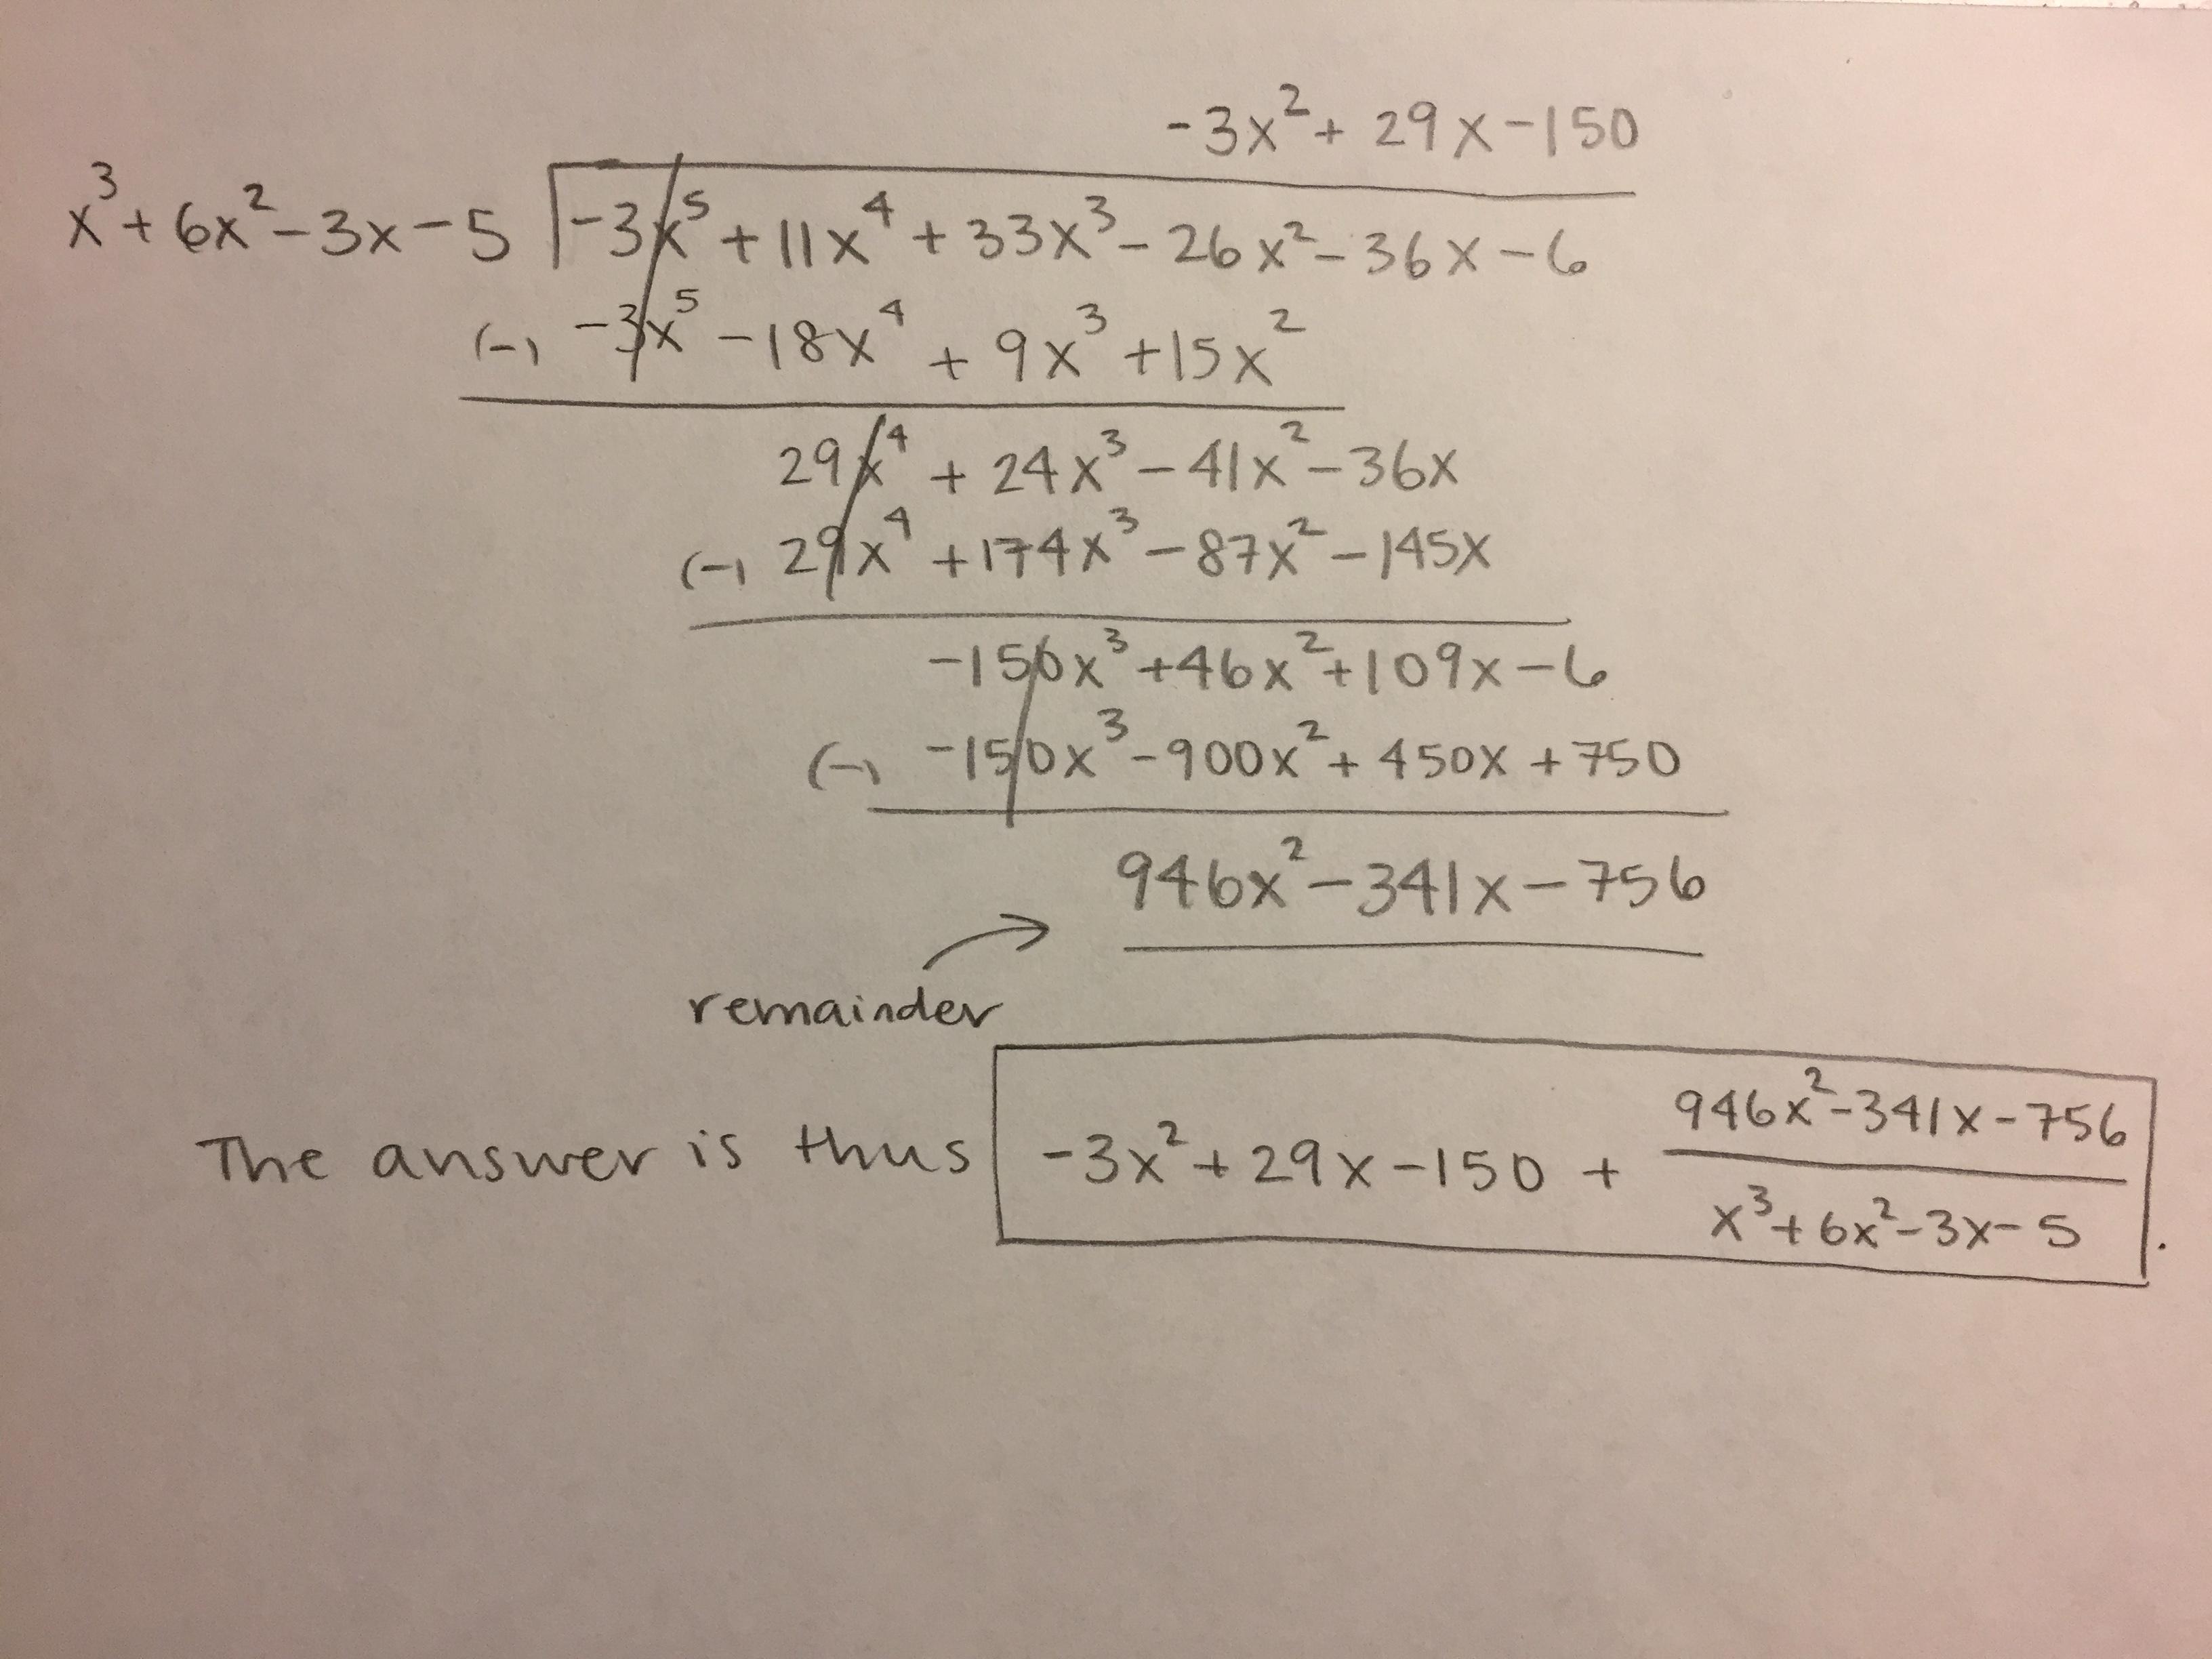 -3x² + 29x - 150
x³ + 6x² - 3x - 5 | -3x⁵ + 11x⁴ + 33x³ - 26x² - 36x - 6
(-) -3x⁵ - 18x⁴ + 9x³ + 15x²
29x⁴ + 24x³ - 41x² - 36x
(-) 29x⁴ + 174x³ - 87x² - 145x
-150x³ + 46x² + 109x - 6
(-) -150x³ - 900x² + 450x + 750
946x² - 341x - 756
remainder
The answer is thus -3x² + 29x - 150 + (946x² - 341x - 756)/(x³ + 6x² - 3x - 5).